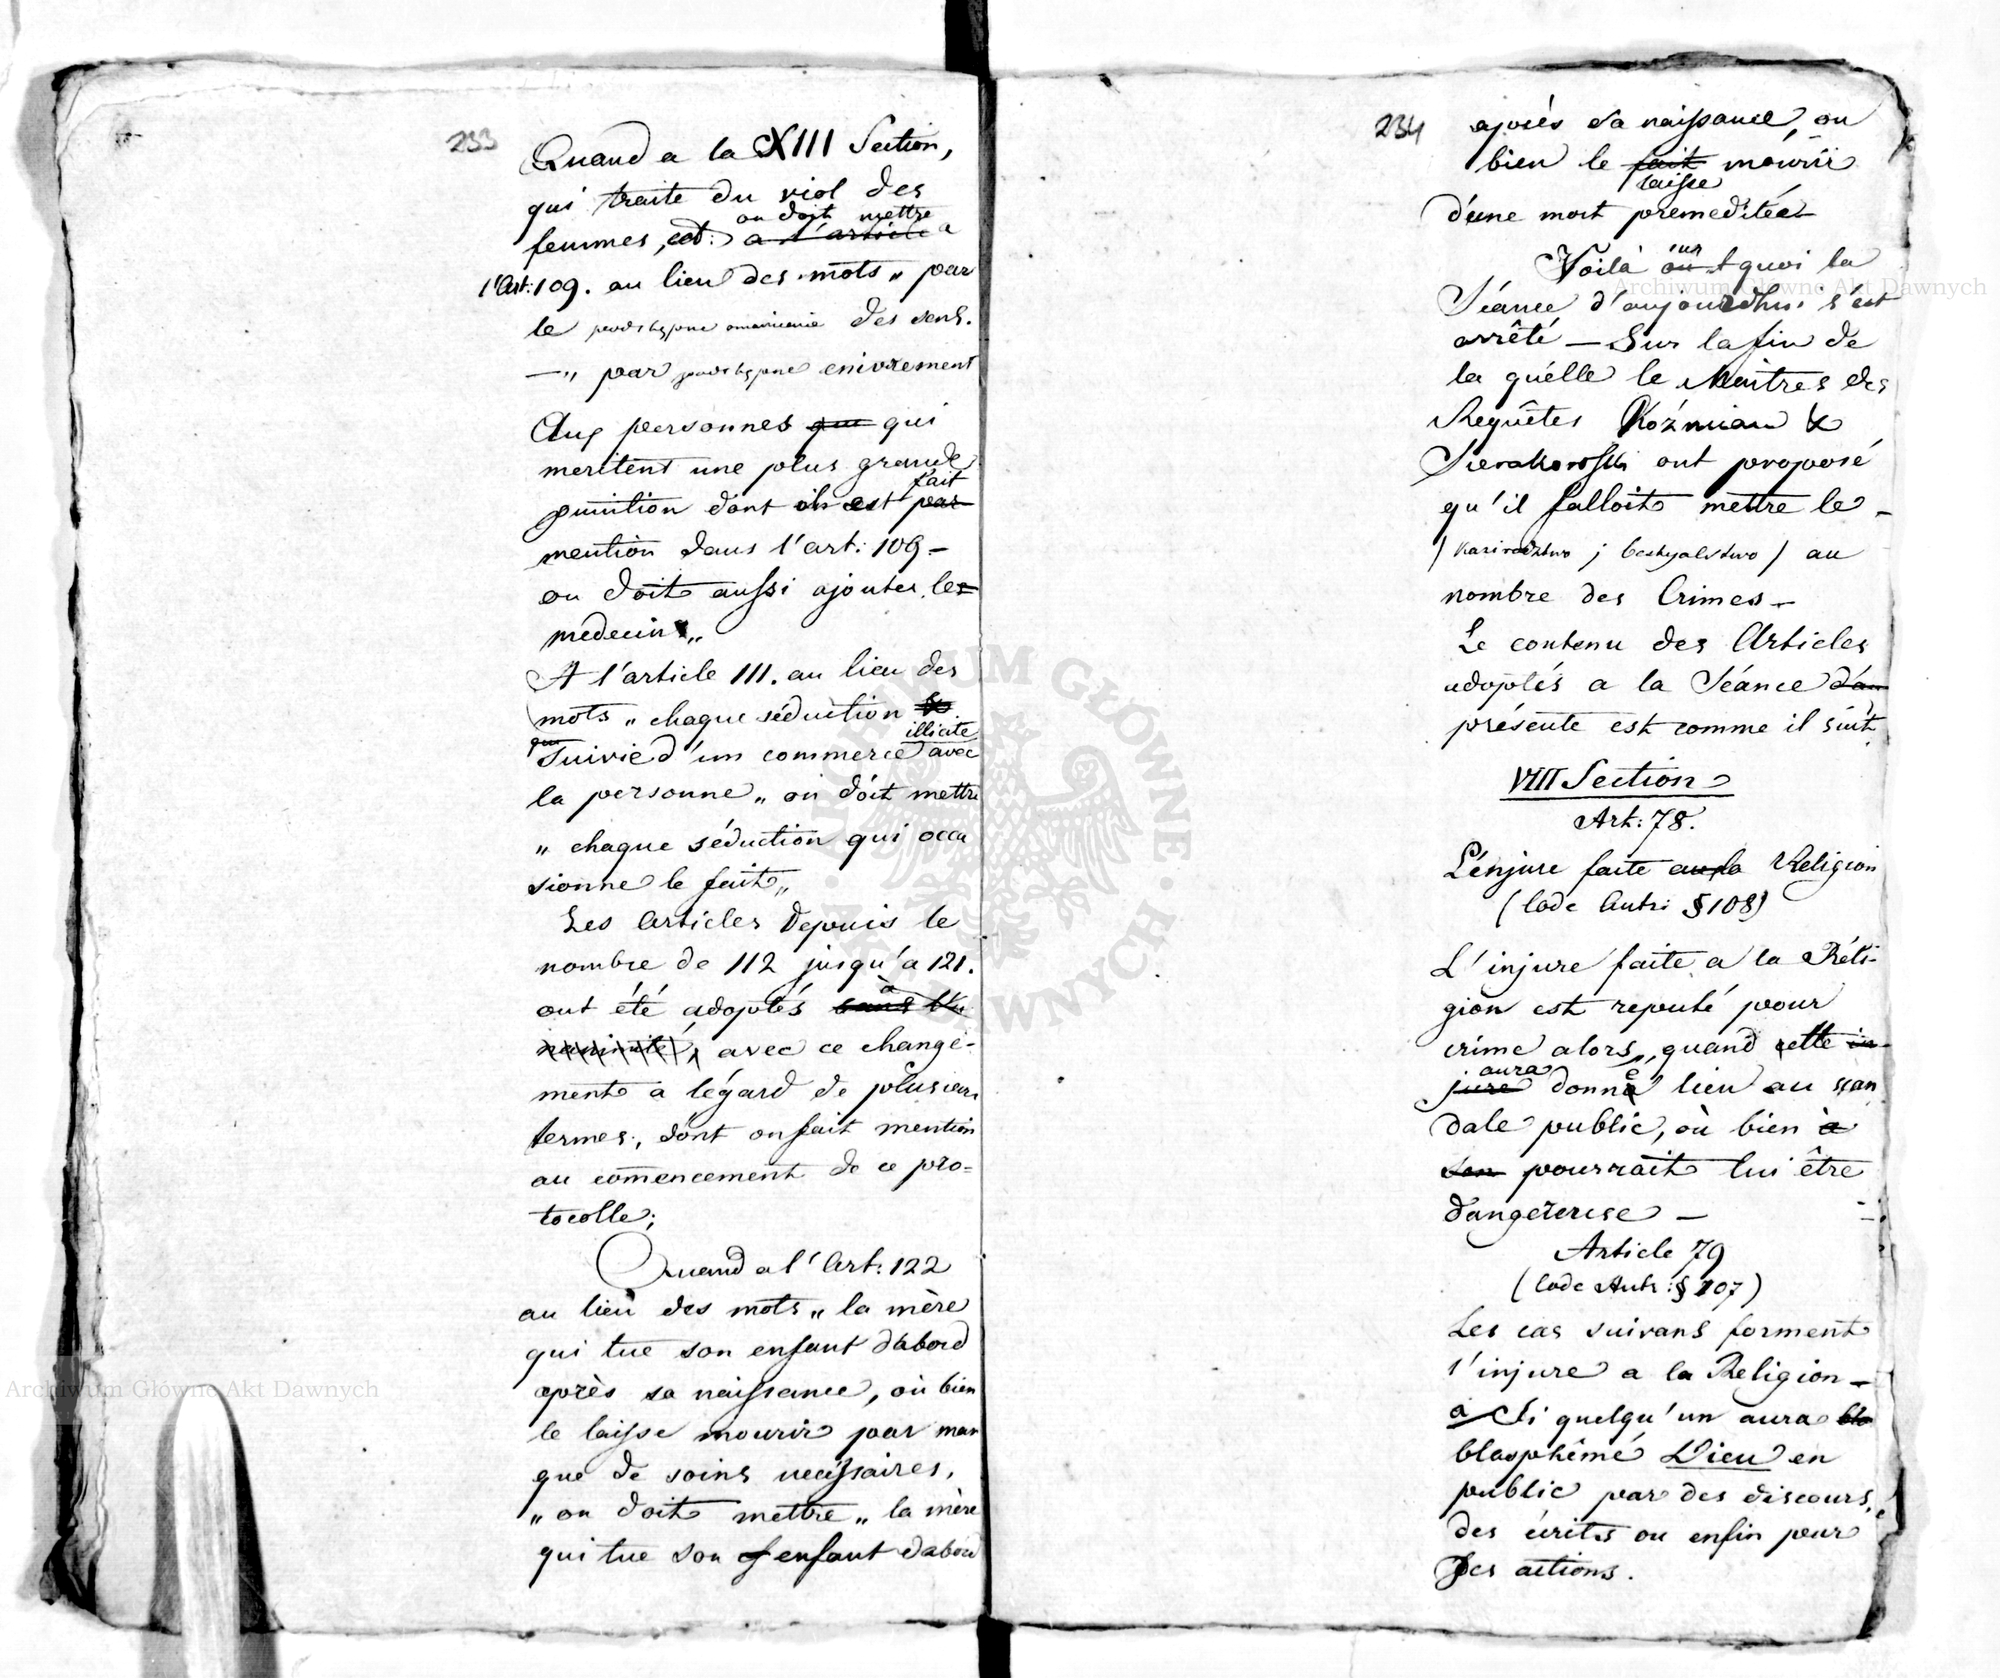 233
Quand a la XIII Section,
qui traite du viol des
on doit mettre
femmes, est: a l'article a
l'Art: 109. au lieu des mots „ par
le podstępne omamienie des sens.
—„ par podstępne enivrement
Aux personnes que qui
meritent une plus grande
fait
punition dont il est par
mention dans l'art: 109 —
on doit aussi ajouter les
medecins „
A l'article 111. au lieu des
mots „ chaque séduction
illicite
suivie d'un commerce avec
la personne „ on doit mettre
„ chaque séduction qui occa
sionne le fait „
Les articles depuis le
nombre de 112 jusqu'a 121.
à
ont été adoptés sans l'u
nanimité, avec ce change-
ment a légard de plusieurs
termes, dont on fait mention
au comencement de ce pro=
tocolle;
Quand a l'Art: 122
au lieu des mots „ la mère
qui tue son enfant dabord
après sa naissance, où bien
le laisse mourir par man
que de soins necéssaires,
„ on doit mettre „ la mère
qui tue son enfant dabord
234
après sa naissance, ou
bien le fait mourir
laisse
d'une mort premeditée —
sur
Voilà quoi la
Séance d'aujourdhui s'est
arrêté — Sur la fin de
la quélle le Maitres des
Requêtes Koźmian &
Sierakowski ont proposé
qu'il falloit mettre le —
( kazirodztwo j bestyalstwo ) au
nombre des Crimes —
Le contenu des Articles
adoptés a la Séance d'au
présente est comme il suit
VIII Section
Art: 78.
L'énjure faite au la Religion
(Code Autr: § 108)
L'injure faite a la Réli-
gion est reputé pour
crime alors, quand cette in-
aura
jure donné lieu au scan
dale public, où bien à
son pourrait lui être
dangereuse —
Article 79
(Code Autr: § 107)
Les cas suivans forment
l'injure a la Religion —
a Si quelqu'un aura bla
blasphêmé Dieu en
public par des discours,
des écrits ou enfin pour
des actions.
Archiwum Główne Akt Dawnych
Archiwum Główne Akt Dawnych
ARCHIWUM GŁÓWNE AKT DAWNYCH